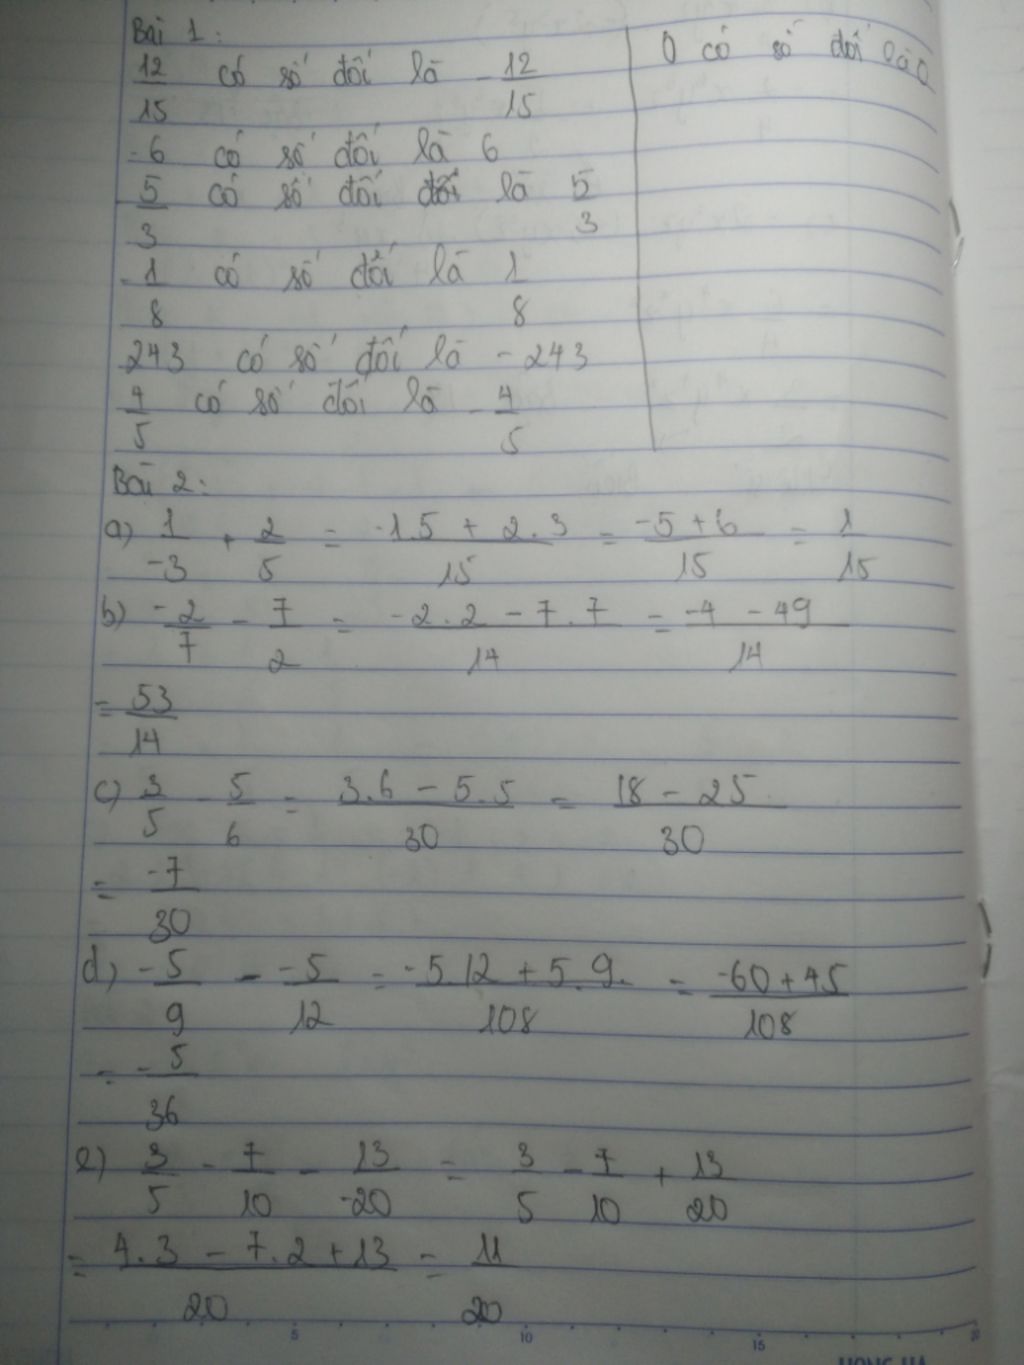 Bài 1:
12/15 có số đối là -12/15
-6 có số đối là 6
5/3 có số đối đối là 5/3
-1/8 có số đối là 1/8
243 có số đối là -243
4/5 có số đối là -4/5
0 có số đối là 0
Bài 2:
a) 1/-3 + 2/5 = -1.5 + 2.3/15 = -5+6/15 = 1/15
b) -2/7 - 7/2 = -2.2 - 7.7/14 = -4 - 49/14
= 53/14
c) 3/5 - 5/6 = 3.6 - 5.5/30 = 18 - 25/30
= -7/30
d) -5/9 - -5/12 = -5.12 + 5.9./108 = -60+45/108
= -5/36
e) 3/5 - 7/10 - 13/-20 = 3/5 - 7/10 + 13/20
= 4.3 - 7.2 + 13/20 = 11/20
5 10 15